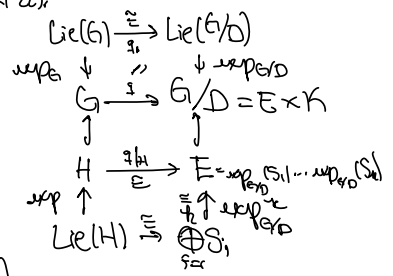 Lie(G) ≅→ q₁ Lie(G/D)
exp_G ↓ // ↓ exp_{G/D}
G q→ G/D = E × K
H q|_H→ ≅ E = exp_{G/D}(S₁)…exp_{G/D}(S_k)
exp ↑ ≅ ↑ exp_{G/D}
Lie(H) ≅→ ⊕ S_i